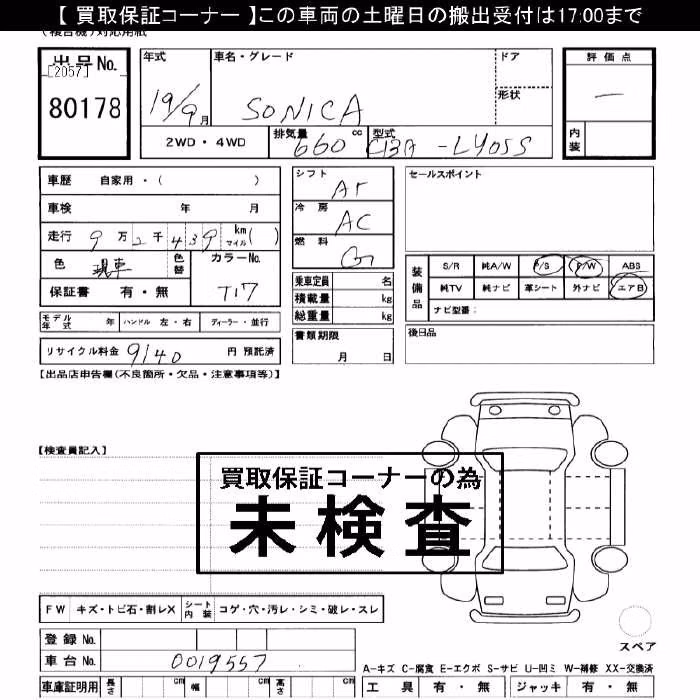 【 買取保証コーナー 】この車両の土曜日の搬出受付は17:00まで
(複合機)対応用紙
出品No. [2057] 80178
年式 19/9月
車名・グレード SONICA
ドア
形状
評価点 —
内装
2WD・4WD
排気量 660 cc
型式 CBA-L405S
車歴 自家用・( )
車検 年 月
走行 9万2千439 km マイル( )
色 現車 色替
カラーNo. T17
保証書 有・無
モデル年式 年 ハンドル 左・右 ディーラー・並行
リサイクル料金 9140 円 預託済
シフト AT
冷房 AC
燃料 G
乗車定員 名
積載量 kg
総重量 kg
書類期限 月 日
セールスポイント
装備品
S/R 純A/W P/S P/W ABS
純TV 純ナビ 革シート 外ナビ エアB
ナビ型番:
後日品
【出品店申告欄(不良箇所・欠品・注意事項等)】
【検査員記入】
買取保証コーナーの為
未検査
FW キズ・トビ石・割レX シート内装 コゲ・穴・汚レ・シミ・破レ・スレ
スペア
登録No.
車台No. 0019557
A-キズ C-腐食 E-エクボ S-サビ U-凹ミ W-補修 XX-交換済
車庫証明用 長さ cm 幅 cm 高さ cm
工具 有・無 ジャッキ 有・無